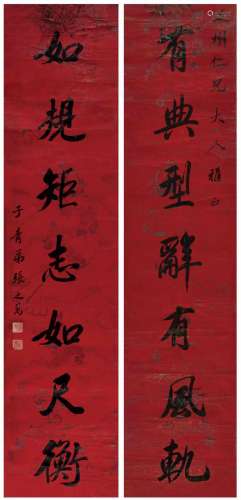 有典型辭有風軌
州仁兄大人雅正
如規矩志如尺衡
子青弟張之萬